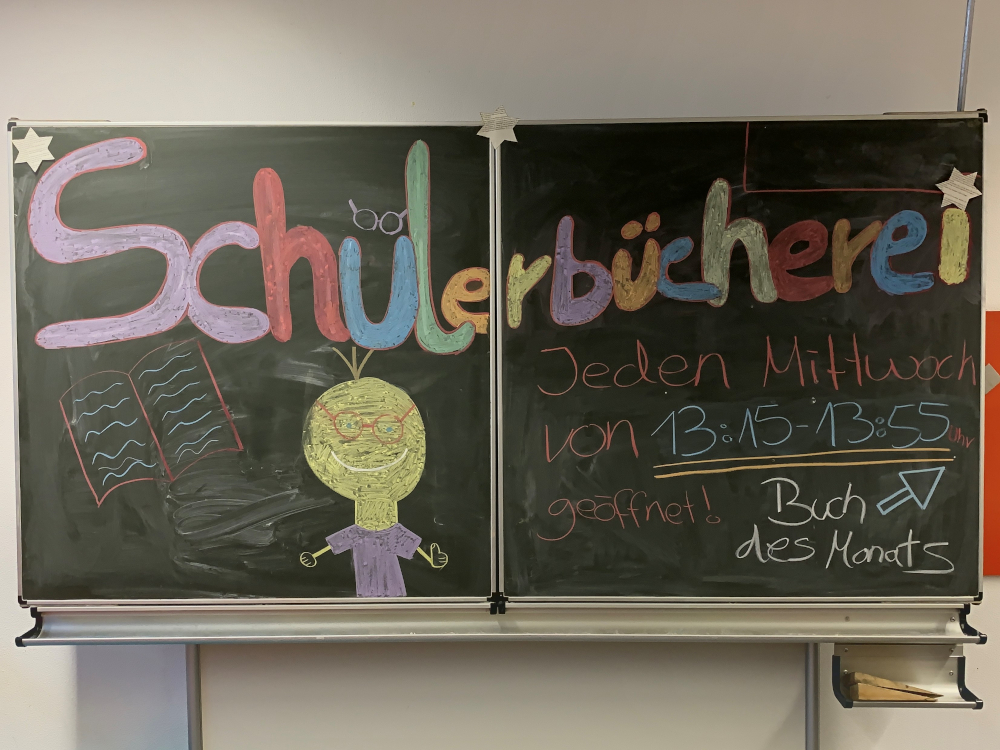 Schülerbücherei
Jeden Mittwoch
von 13:15-13:55 Uhr
geöffnet!
Buch
des Monats